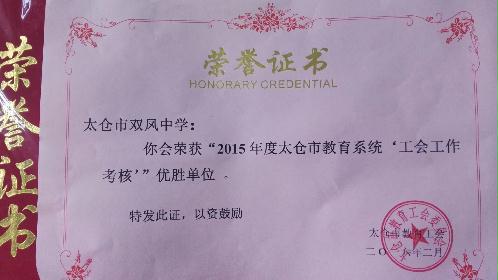 荣誉证书
荣誉证书
HONORARY CREDENTIAL
太仓市双凤中学：
你会荣获“2015年度太仓市教育系统‘工会工作
考核’”优胜单位。
特发此证，以资鼓励
太仓市教育工会
二〇 年二月